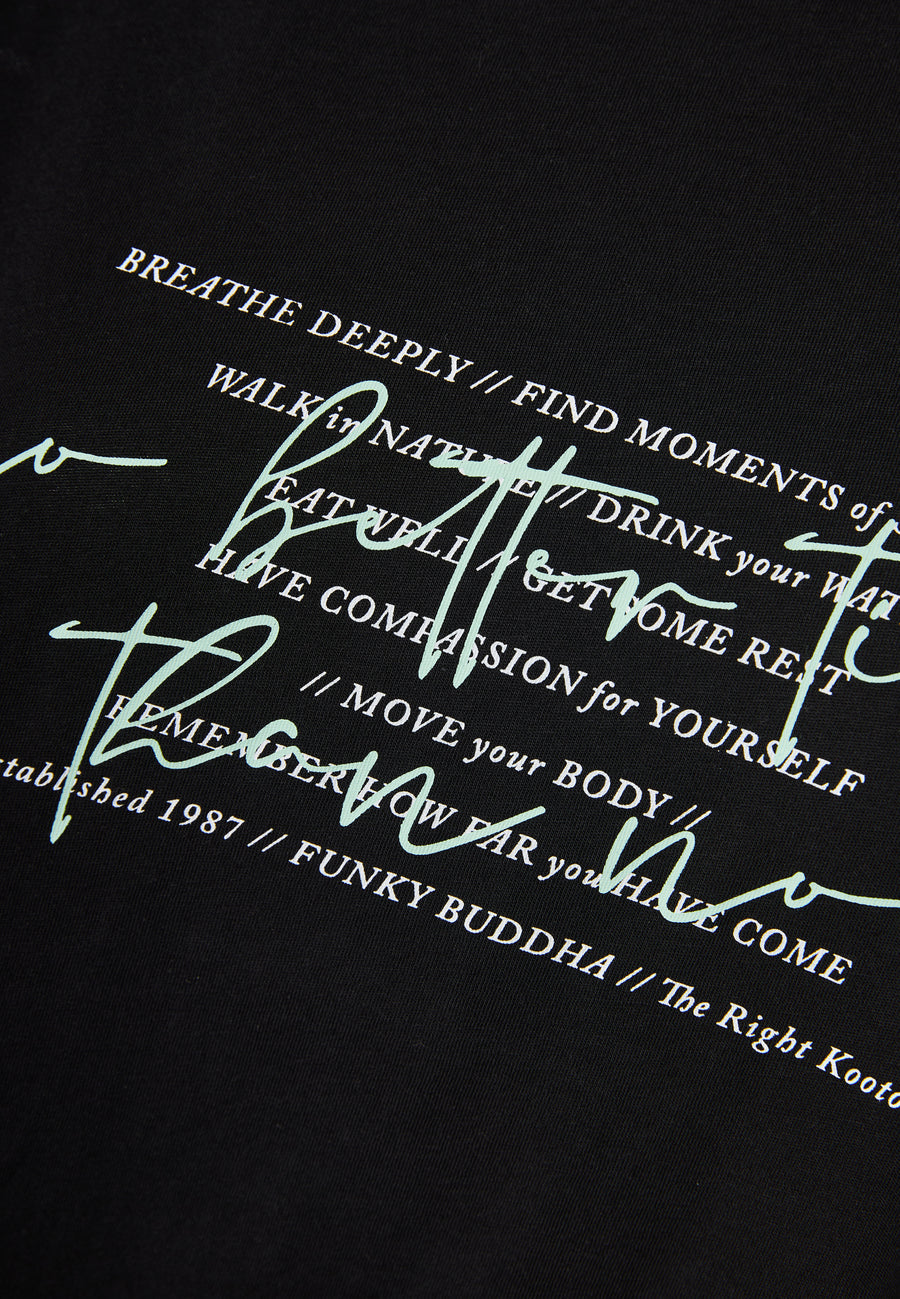 BREATHE DEEPLY // FIND MOMENTS of
WALK in NATURE // DRINK your WAT
o better ti
EAT WELL // GET SOME REST
HAVE COMPASSION for YOURSELF
// MOVE your BODY //
than no
REMEMBER HOW FAR you HAVE COME
stablished 1987 // FUNKY BUDDHA // The Right Kooto